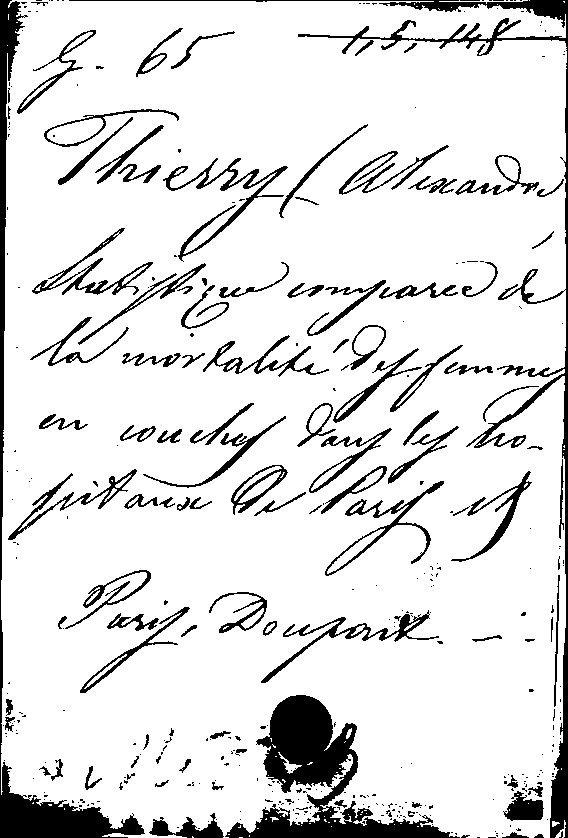 G. 65 1,5,148
Thierry (Alexandre
Statistique comparée de
la mortalité des femmes
en couches dans les ho-
pitaux de Paris et
Paris, Doupont. —